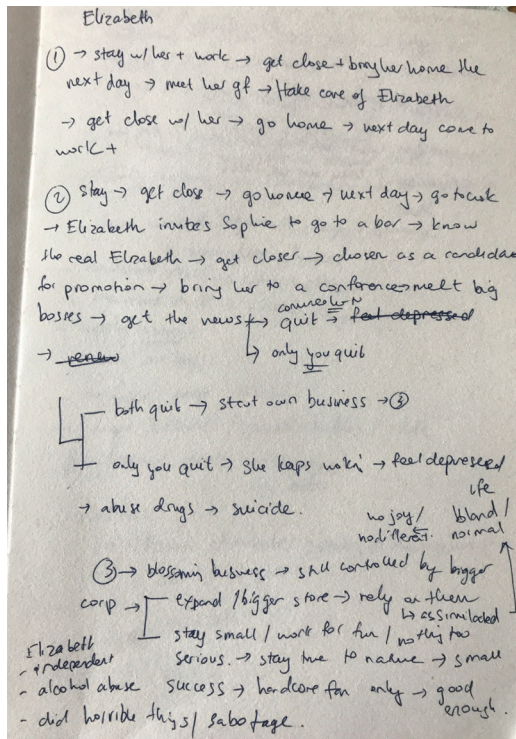 Elizabeth
① → stay w/ her + work → get close + bring her home the
next day → meet her gf → take care of Elizabeth
→ get close w/ her → go home → next day come to
work +
② stay → get close → go home → next day → go to work
→ Elizabeth invites Sophie to go to a bar → know
the real Elizabeth → get closer → chosen as a candidate
for promotion → bring her to a conference → meet big
bosses → get the news → quit → feel depressed
→ renew
↳ only you quit
both quit → start own business → ③
only you quit → she keeps workin' → feel depressed
→ abuse drugs → suicide.
life
no joy / bland /
no different. ← normal
③ → blossoming business → still controlled by bigger
corp → expand / bigger store → rely on them
↳ assimilated
stay small / work for fun / nothing too
serious. → stay true to nature → small
success → hardcore fan only → good
enough.
Elizabeth
- independent
- alcohol abuse
- did horrible things / sabotage.